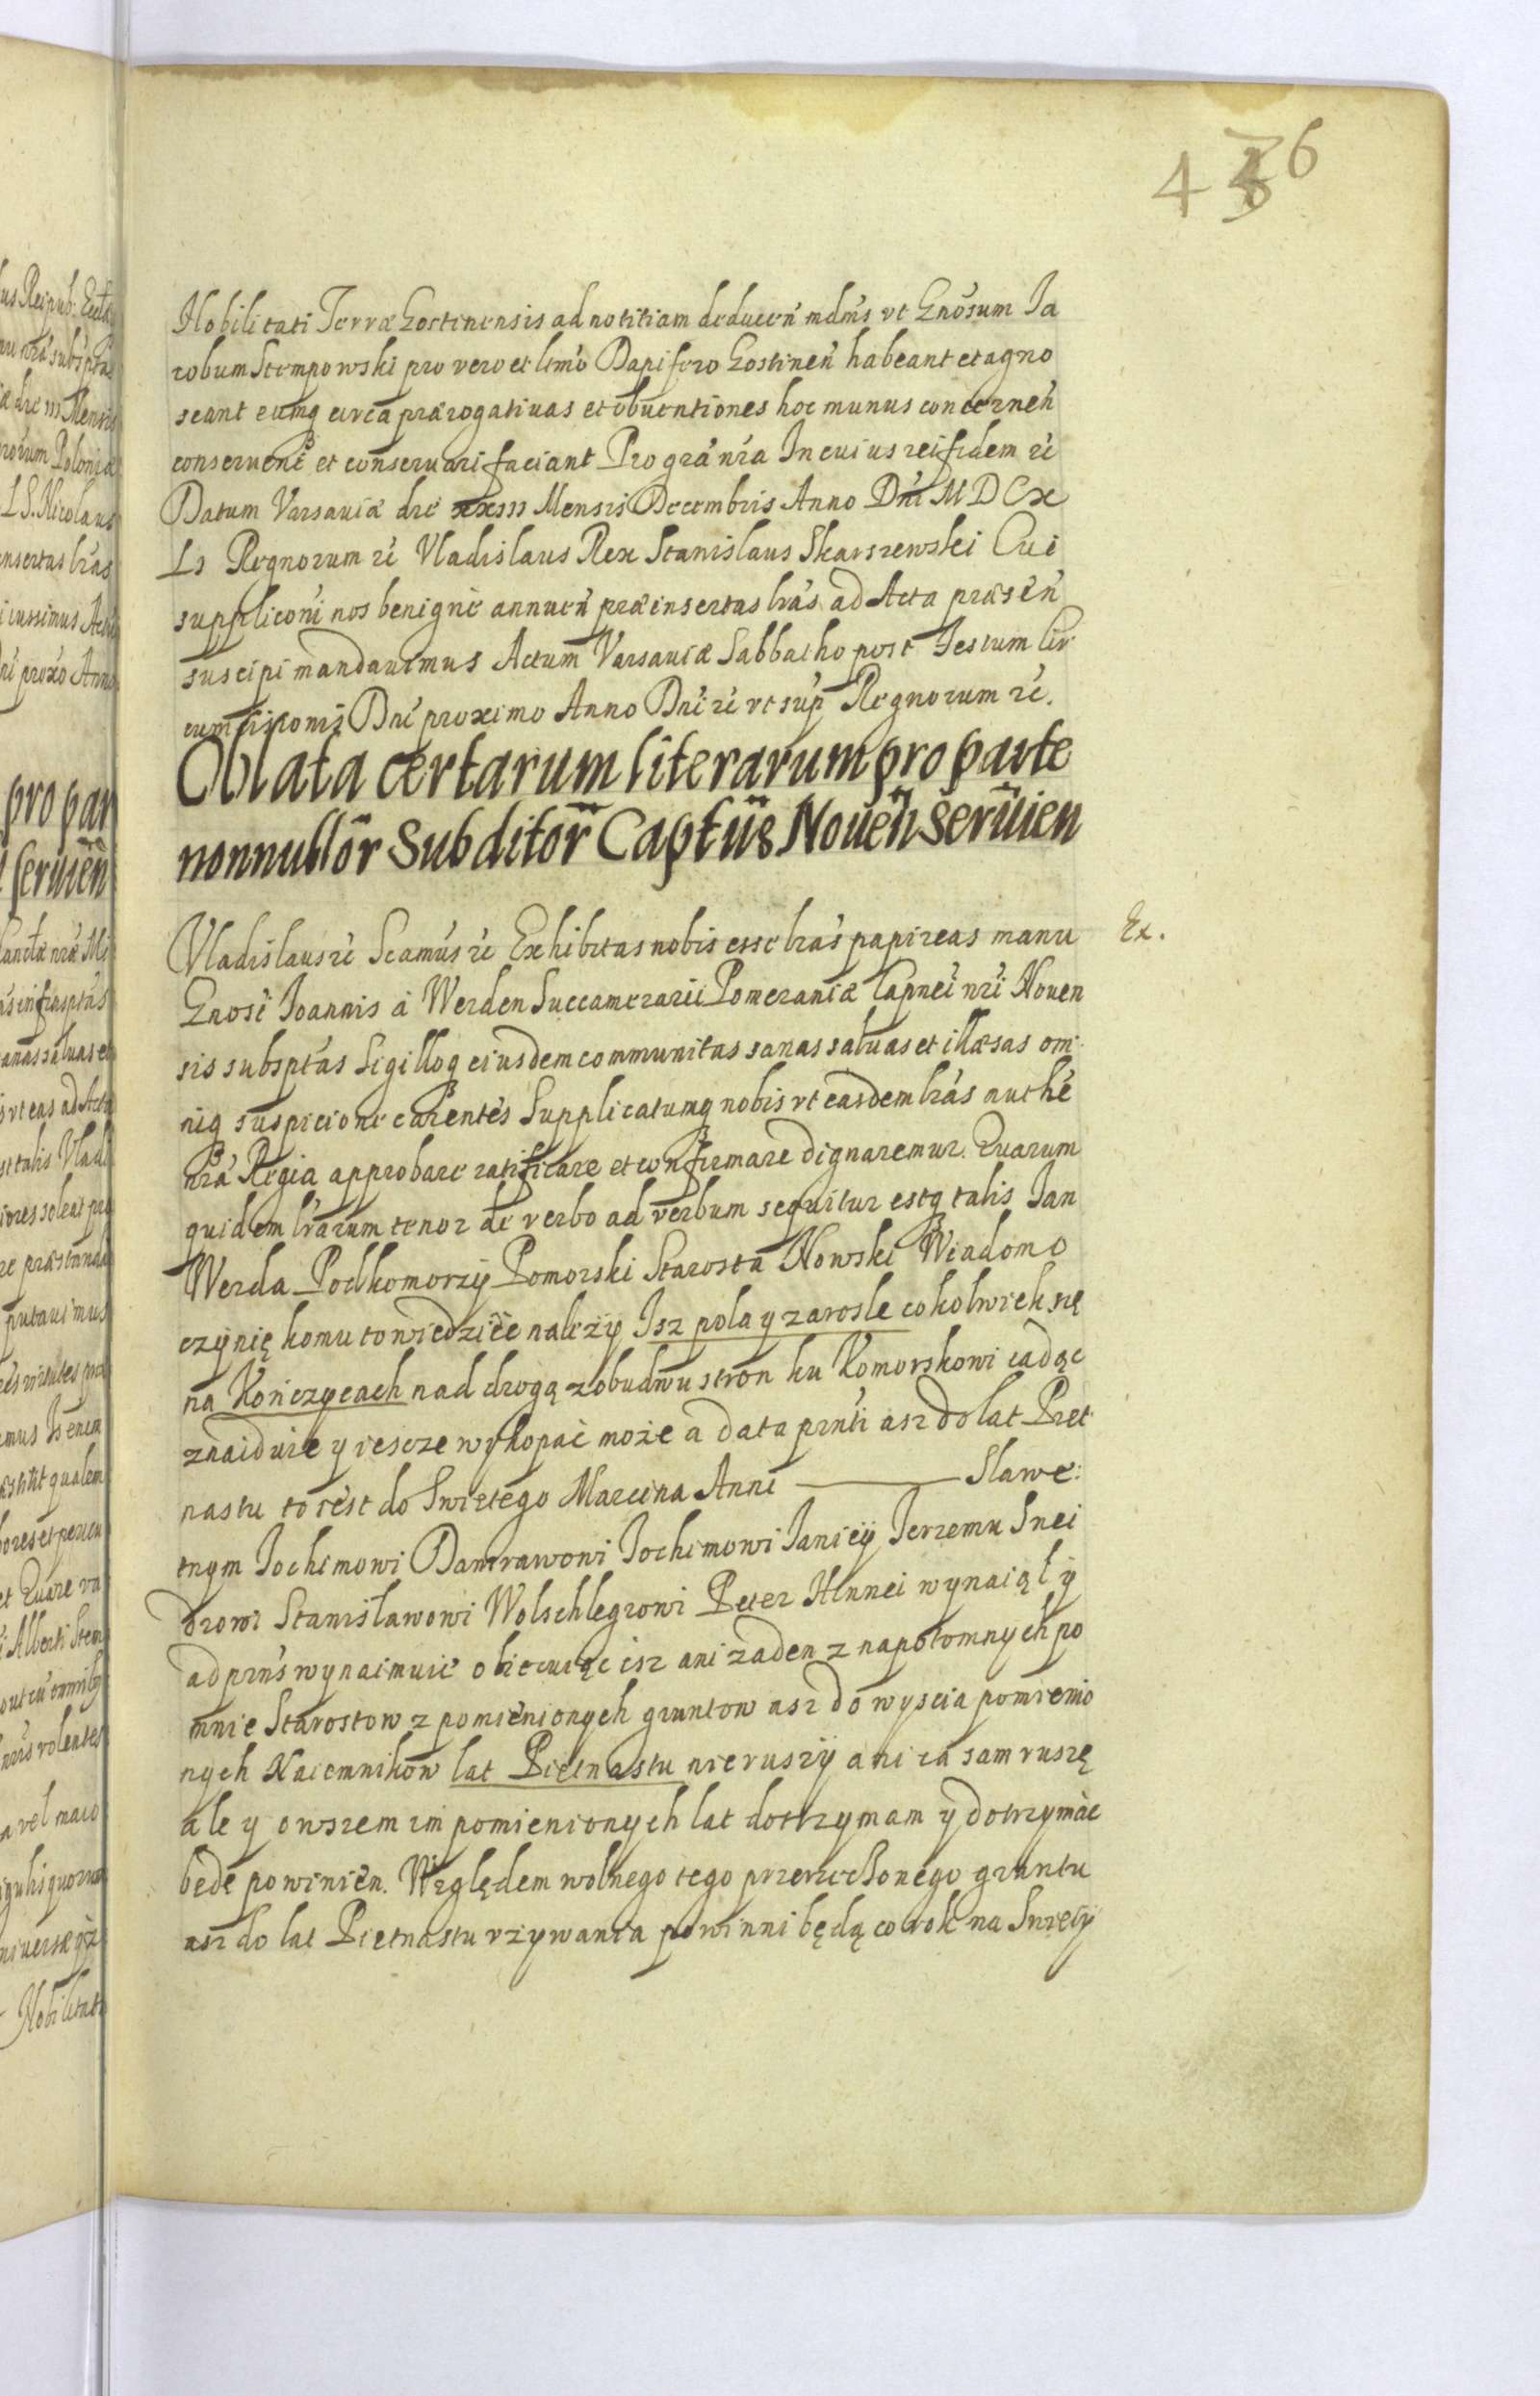 436
Nobilitati Terræ Gostinensis ad notitiam deducen̄ mdm̄s vt Gnōsum Ia
cobum Stempowski pro vero et ltm̄o Dapifero Gostinen̄ habeant et agno
scant eumq circa prærogatiuas et obuentiones hoc munus concernen̄
conseruent et conseruari faciant Pro grā nrā In cuius rei fidem rc
Datum Varsauiæ die xxiii Mensis Decembris Anno Dni M D C x
Ls Regnorum rc Vladislaus Rex Stanislaus Skarszewski Cui
suppliconi nos benigne annuen̄ præinsertas lrās ad Acta præsen̄
suscipi mandauimus Actum Varsauiæ Sabbatho post Festum Cir
cumsisionis Dni proximo Anno Dni rc vt sup Regnorum rc.
Oblata certarum literarum pro parte
nonnullor̄ Subditor̄ Captūs Noueñ seruien
Vladislaus rc Scamus rc Exhibitas nobis esse lrās papireas manu
Ex.
Gnosi Ioannis à Werden Succamerarii Pomeraniæ Capnei nri Nouen
sis subsptas Sigilloq eiusdem communitas sanas saluas et illæsas om
niq suspicione carentes Supplicatumq nobis vt easdem lrās authē
nrā Regia approbare ratificare et confirmare dignaremur. Quarum
quidem lrarum tenor de verbo ad verbum sequitur estq talis Jan
Werda Podkomorzÿ Pomorski Starosta Nowski Wiadomo
czÿnię komu to wiedzieć należÿ Isz pola y zarosle cokolwiek się
na Kończycach nad drogą z obudwu stron ku Komorskowi iadąc
znaiduie y iescze wykopać może a data prnti asz do lat Piet
nastu to iest do Swietego Marcina Anni ——— Slawe:
tnym Jochimowi Damrawoni Jochimowi Janicÿ Jerzemu Snei
drowi Stanisławowi Wolschlegrowi Peter Hnnei wynaiął y
ad prns wynaimuie obiecuiąc isz ani żaden z napotomnych po
mnie Starostow z pomienionych gruntow asz do wyscia pomienio
nych Naiemnikow lat Pietnastu nie ruszÿ ani ia sam ruszę
ale y owszem im pomienionych lat dotrzymam y dotrzymác
bedę powinien. Względem wolnego tego przerzeczonego gruntu
asz do lat Pietnastu vzywania powinni będą co rok na Swiety